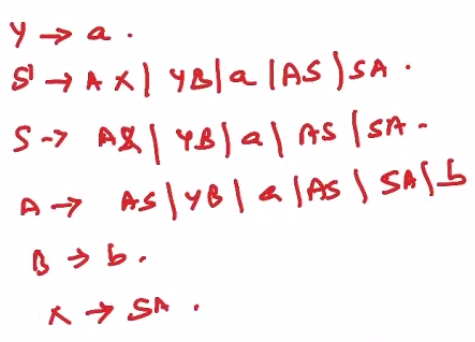 Y → a .
S' → A X | YB | a | AS | SA .
S → AX | YB | a | AS | SA .
A → AS | YB | a | AS | SA | b
B → b .
X → SA .